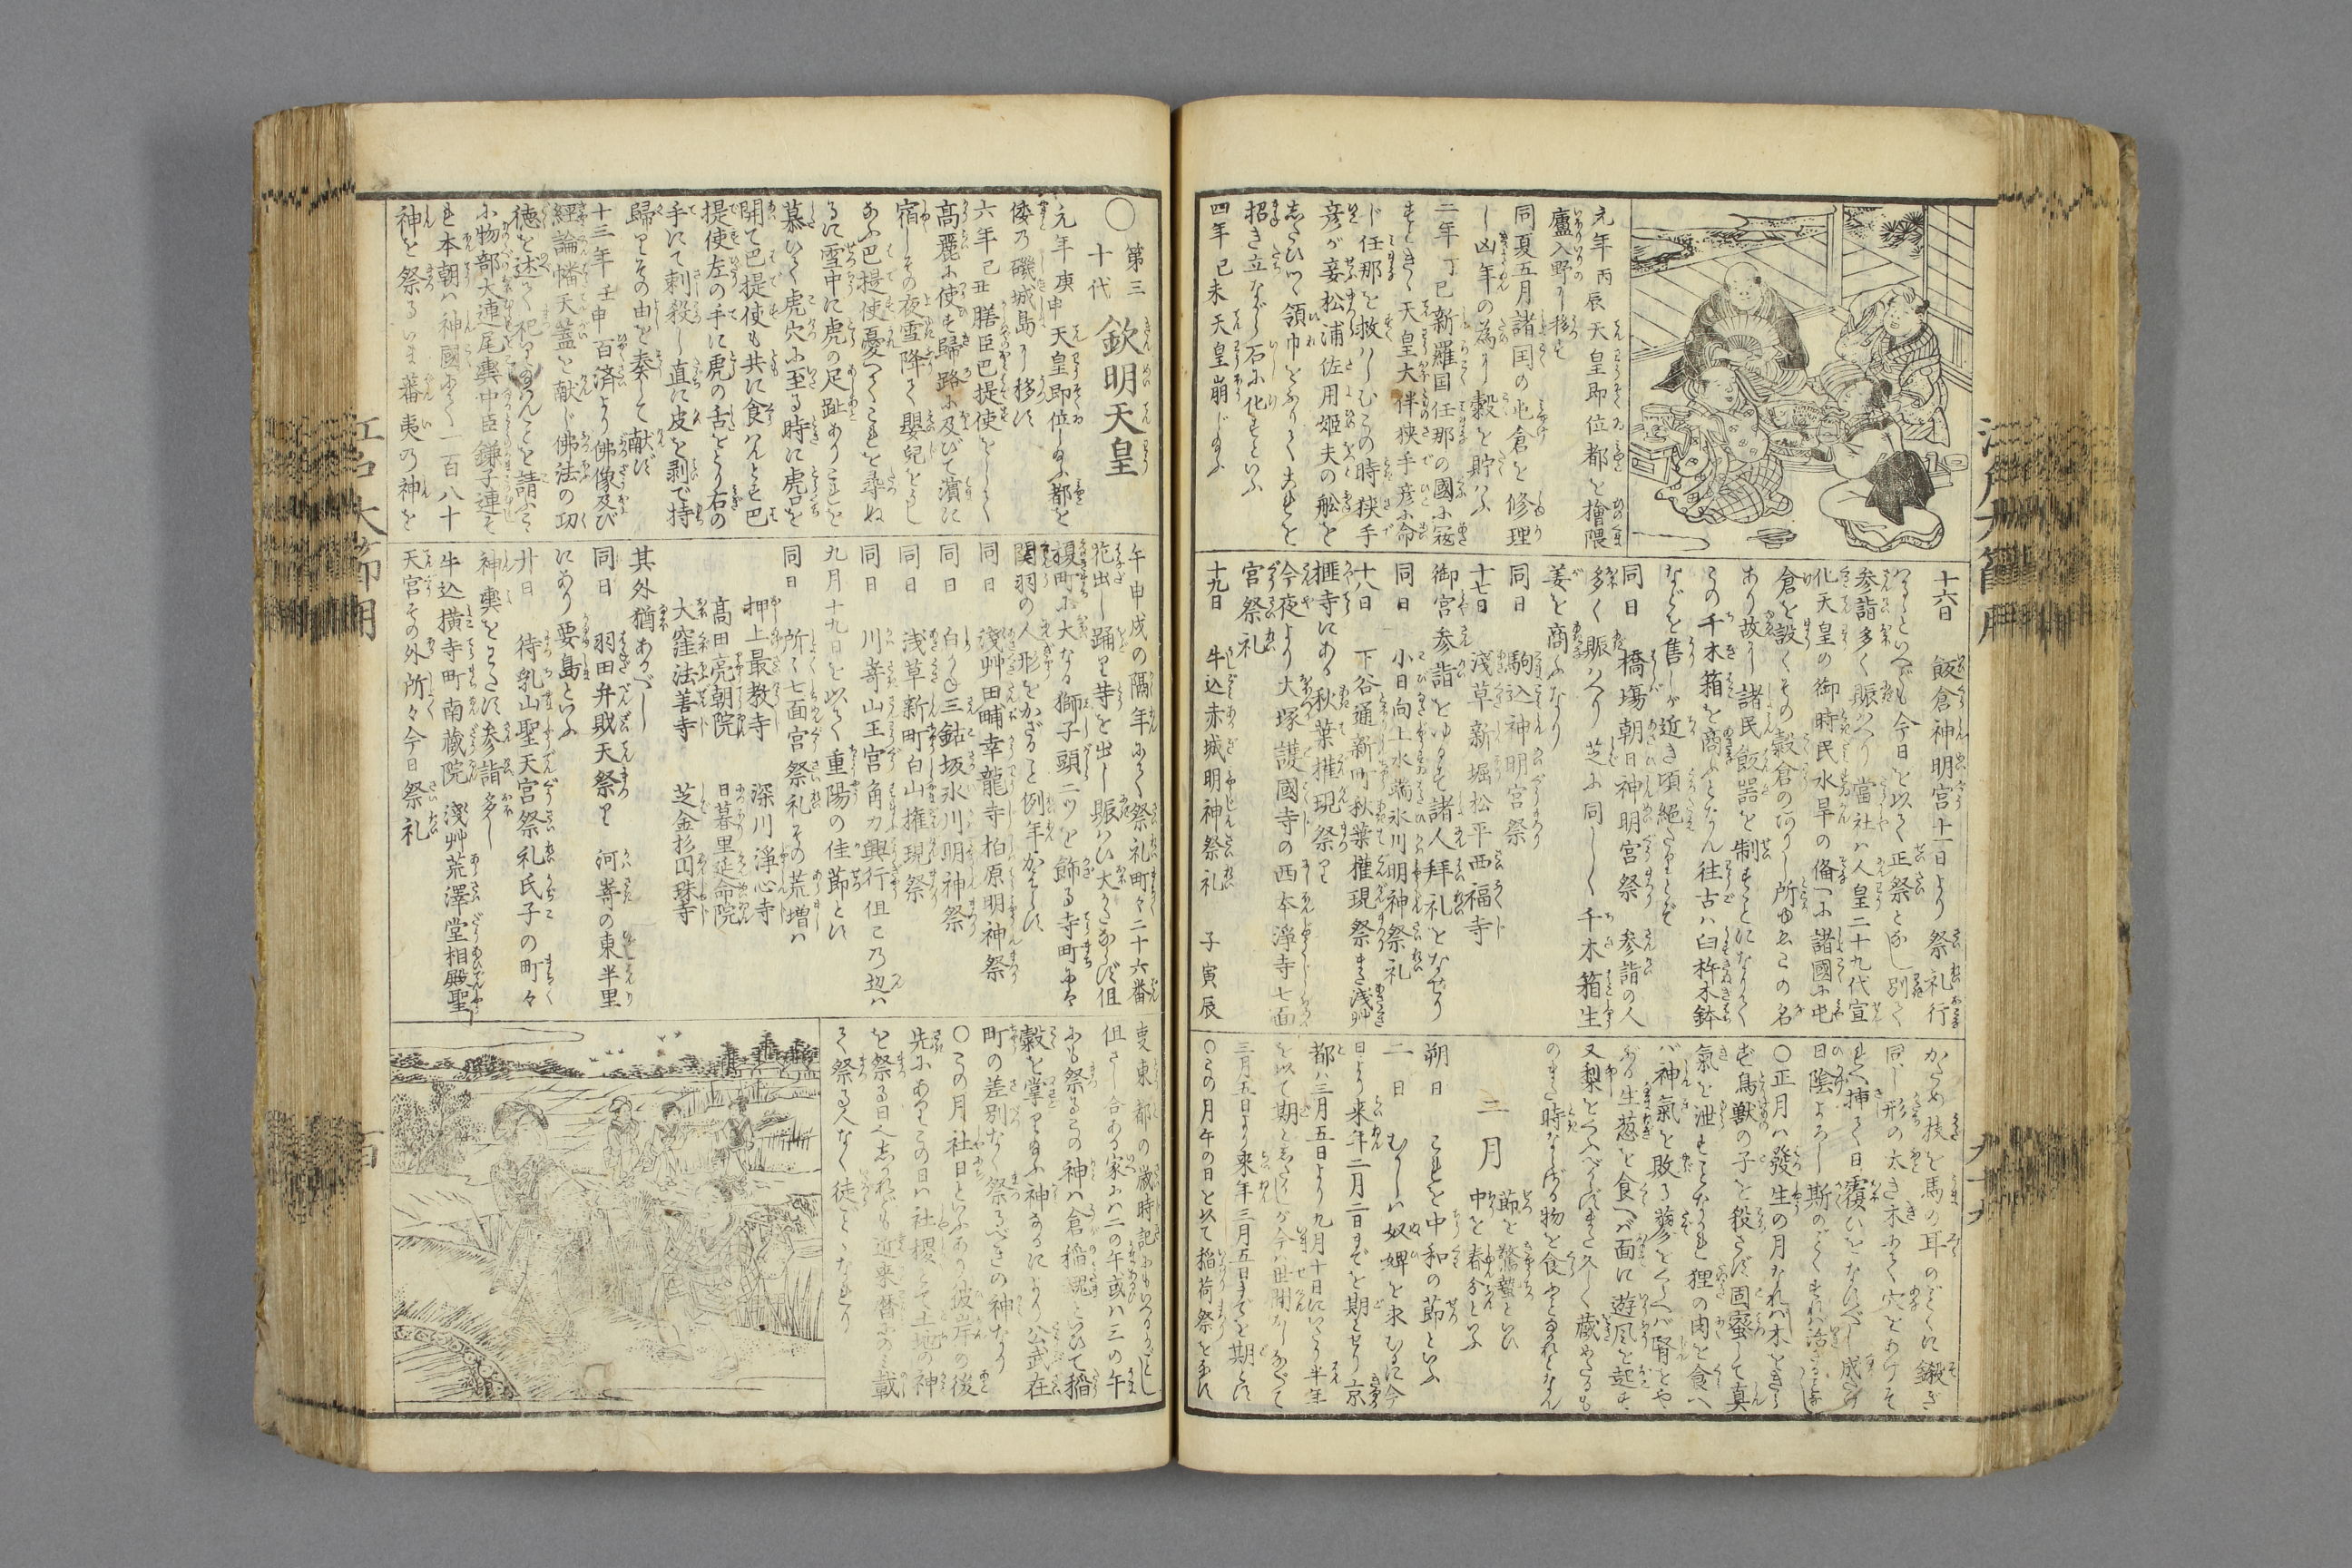 元年丙辰天皇即位都を檜隈
廬入野に移す
同夏五月諸国の屯倉を修理
し凶年の為に穀を貯ふ
二年丁巳新羅国任那の國に寇
すときく天皇大伴狭手彦に命
じ任那を救はしむこの時狭手
彦が妾松浦佐用姫夫の舩を
したひつゝ領巾をふりて夫を
招き立ながら石に化すといふ
四年己未天皇崩じ給ふ
十六日 飯倉神明宮十一日より祭礼行
はるといへども今日を以て正祭となし別て
参詣多く賑へり當社は人皇二十九代宣
化天皇の御時民水旱の備へに諸國に屯
倉を設くその穀倉のありし所ゆゑこの名
あり故に諸民飯器を制することになりて
この千木箱を商ふとなん往古は臼杵木鉢
などを售しが近き頃絶たりとぞ
同日 橋場朝日神明宮祭 参詣の人
多く賑はへり芝に同じく千木箱生
姜を商ふなり
同日 駒込神明宮祭
十七日 浅草新堀松平西福寺
御宮参詣をゆるされて諸人拝礼をなせり
同日 小日向上水端氷川明神祭礼
十八日 下谷通新町秋葉権現祭また浅艸
橖寺にある秋葉権現祭り
今夜より大塚護國寺の西本浄寺七面
宮祭礼
十九日 牛込赤城明神祭礼 子寅辰
かため技を馬の耳のごとくに鍛ぎ
同じ形の太き木にて穴をあけそ
れへ挿て日覆ひをなすべし成だけ
日陰よろし斯のごとくすれば活
〇正月は發生の月なれば木をきら
ず鳥獣の子を殺さず固蜜して真
氣を泄すことなかれ狸の肉を食へ
ば神氣を敗る蓼をくらへば腎をや
ぶる生葱を食へば面に遊風を起す
又梨をくらふべからずまた久しく蔵めたるも
のまた時ならざる物を食ふことなかれとなん
二月 節を驚蟄といひ
中を春分といふ
朔日 これを中和の節といふ
二日 むかしは奴婢を求むるに今
日より来年二月二日までを期とせり京
都は三月五日より九月十日にいたり半年
を以て期となせしが今は世間なしなべて
三月五日より来年三月五日までを期とす
〇この月午の日を以て稲荷祭をなす
〇第三十代 欽明天皇
元年庚申天皇即位し給ふ都を
倭乃磯城島に移す
六年己丑膳臣巴提使をして
高麗に使す歸路に及びて濱に
宿しその夜雪降て嬰兒を
うしなふ巴提使憂へてこれを尋ぬ
るに雪中に虎の足趾ありこれを
慕ひて虎穴に至る時に虎口を
開て巴提使も共に食はんとす巴
提使左の手に虎の舌をとり右の
手にて刺殺し直に皮を剥で持
歸りその由を奏して献ず
十三年壬申百済より佛像及び
經論幡天蓋を献じ佛法の功
徳を述て祀り給はんことを請ふ
に物部大連尾輿中臣鎌子連そ
れ本朝は神國にて一百八十
神を祭るいま蕃夷の神を
午申戌の隔年にて祭礼町々二十六番
花出し踊り等を出し賑はひ大かたならず但
榎町に大なる獅子頭二ツを飾る寺町にも
関羽の人形をかざること例年かはらず
同日 浅艸田畝幸龍寺柏原明神祭
同日 白かね三鈷坂氷川明神祭
同日 浅草新町白山権現祭
同日 川嵜山王宮角力興行但この辺は
九月十九日を以て重陽の佳節とす
同日 所々七面宮祭礼その荒増は
押上最教寺 深川浄心寺
高田亮朝院 日暮里延命院
大窪法善寺 芝金杉圓珠寺
其外猶あるべし
同日 羽田弁財天祭り 河嵜の東半里
にあり要島といふ
廿日 待乳山聖天宮祭礼氏子の町々
神輿をわたす参詣多し
牛込横寺町南蔵院 浅艸荒澤堂相殿聖
天宮その外所々今日祭礼
東都の歳時記にもいへるがごとし
但さし合ある家には二の午或は三の午
にも祭るこの神は倉稲魂といひて稲
穀を掌り給ふ神なるにより公武在
町の差別なく祭るべきの神なり
〇この月社日といふあり彼岸の後
先にありこの日は社稷とて土地の神
を祭る日也しかれども近来暦にのみ載
て祭る人なく徒ごとゝなれり
江戸大節用
九十九
百